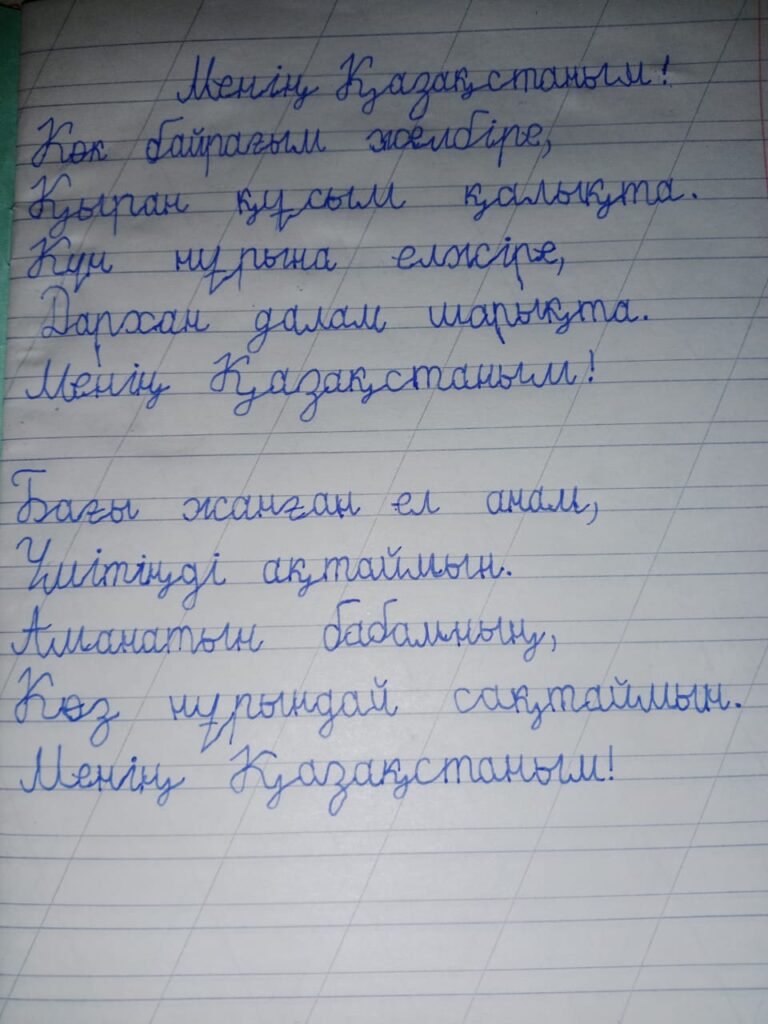 Менің Қазақстаным!
Көк байрағым желбіре,
Қыран құсым қалықта.
Күн нұрына елжіре,
Дархан далам шарықта.
Менің Қазақстаным!
Бағы жанған ел анам,
Үмітіңді ақтаймын.
Аманатын бабамның,
Көз нұрындай сақтаймын.
Менің Қазақстаным!